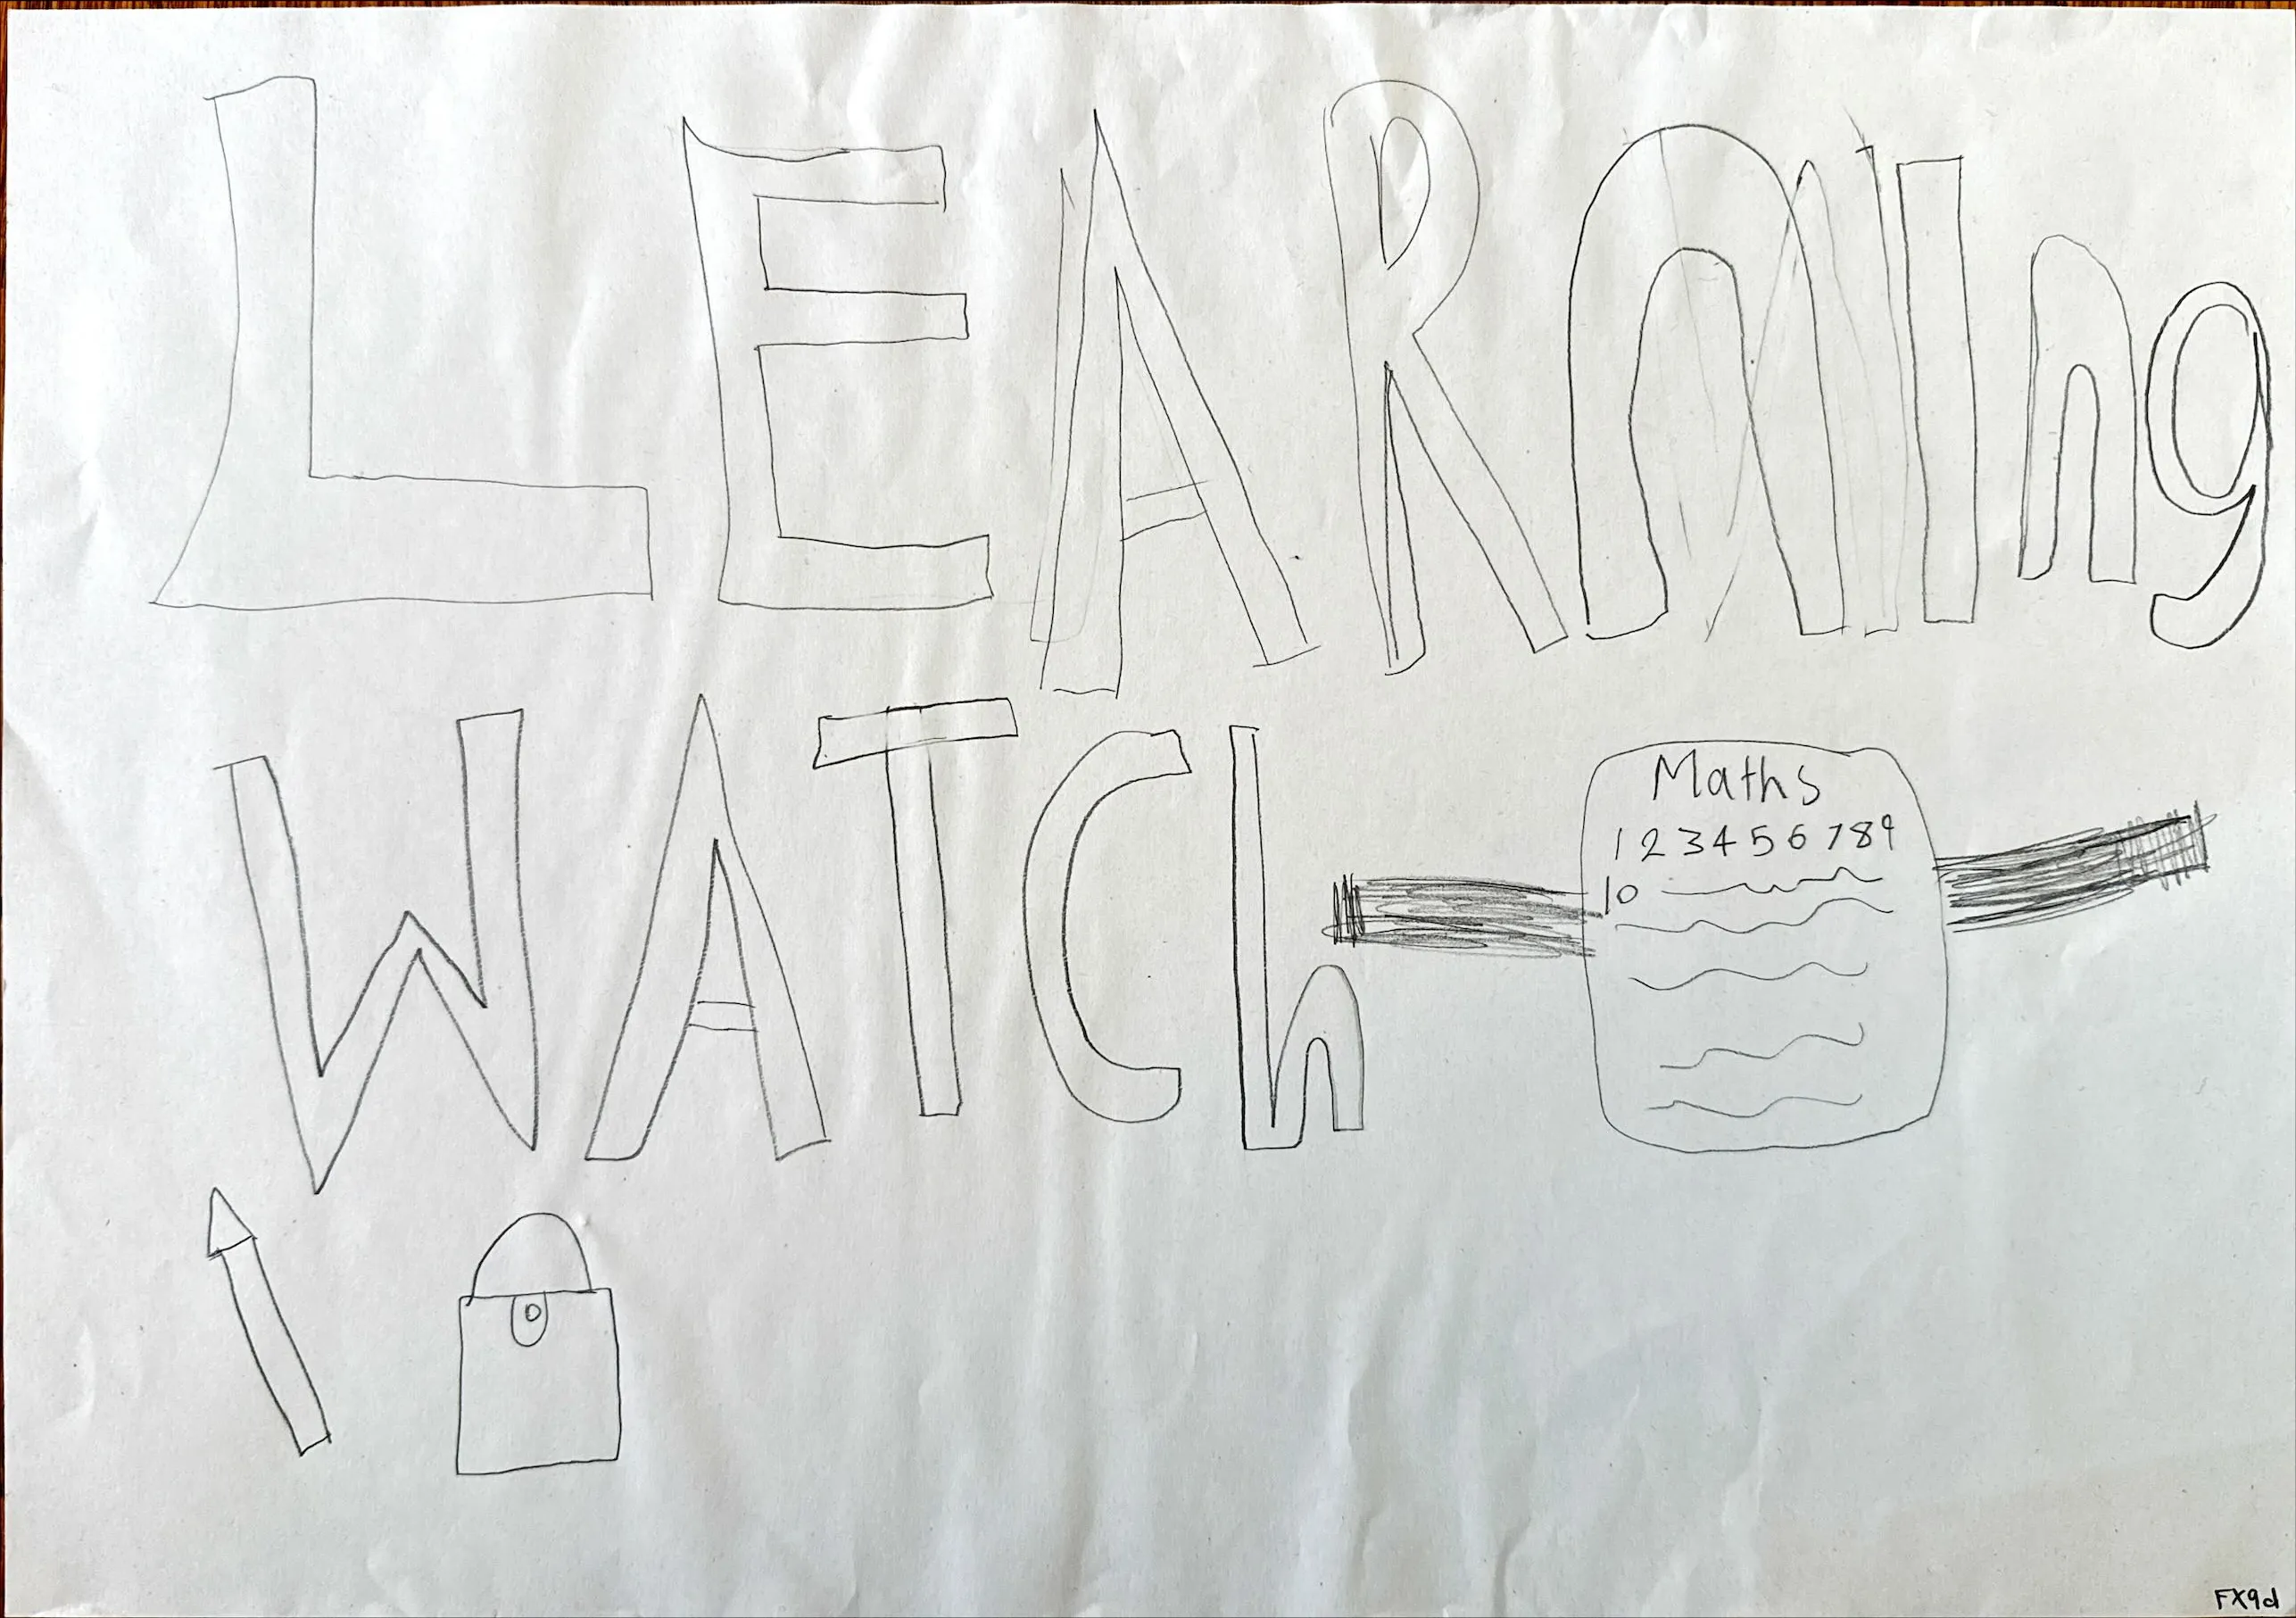 LEARnIng
WATCh
Maths
1 2 3 4 5 6 7 8 9
10
FX9d